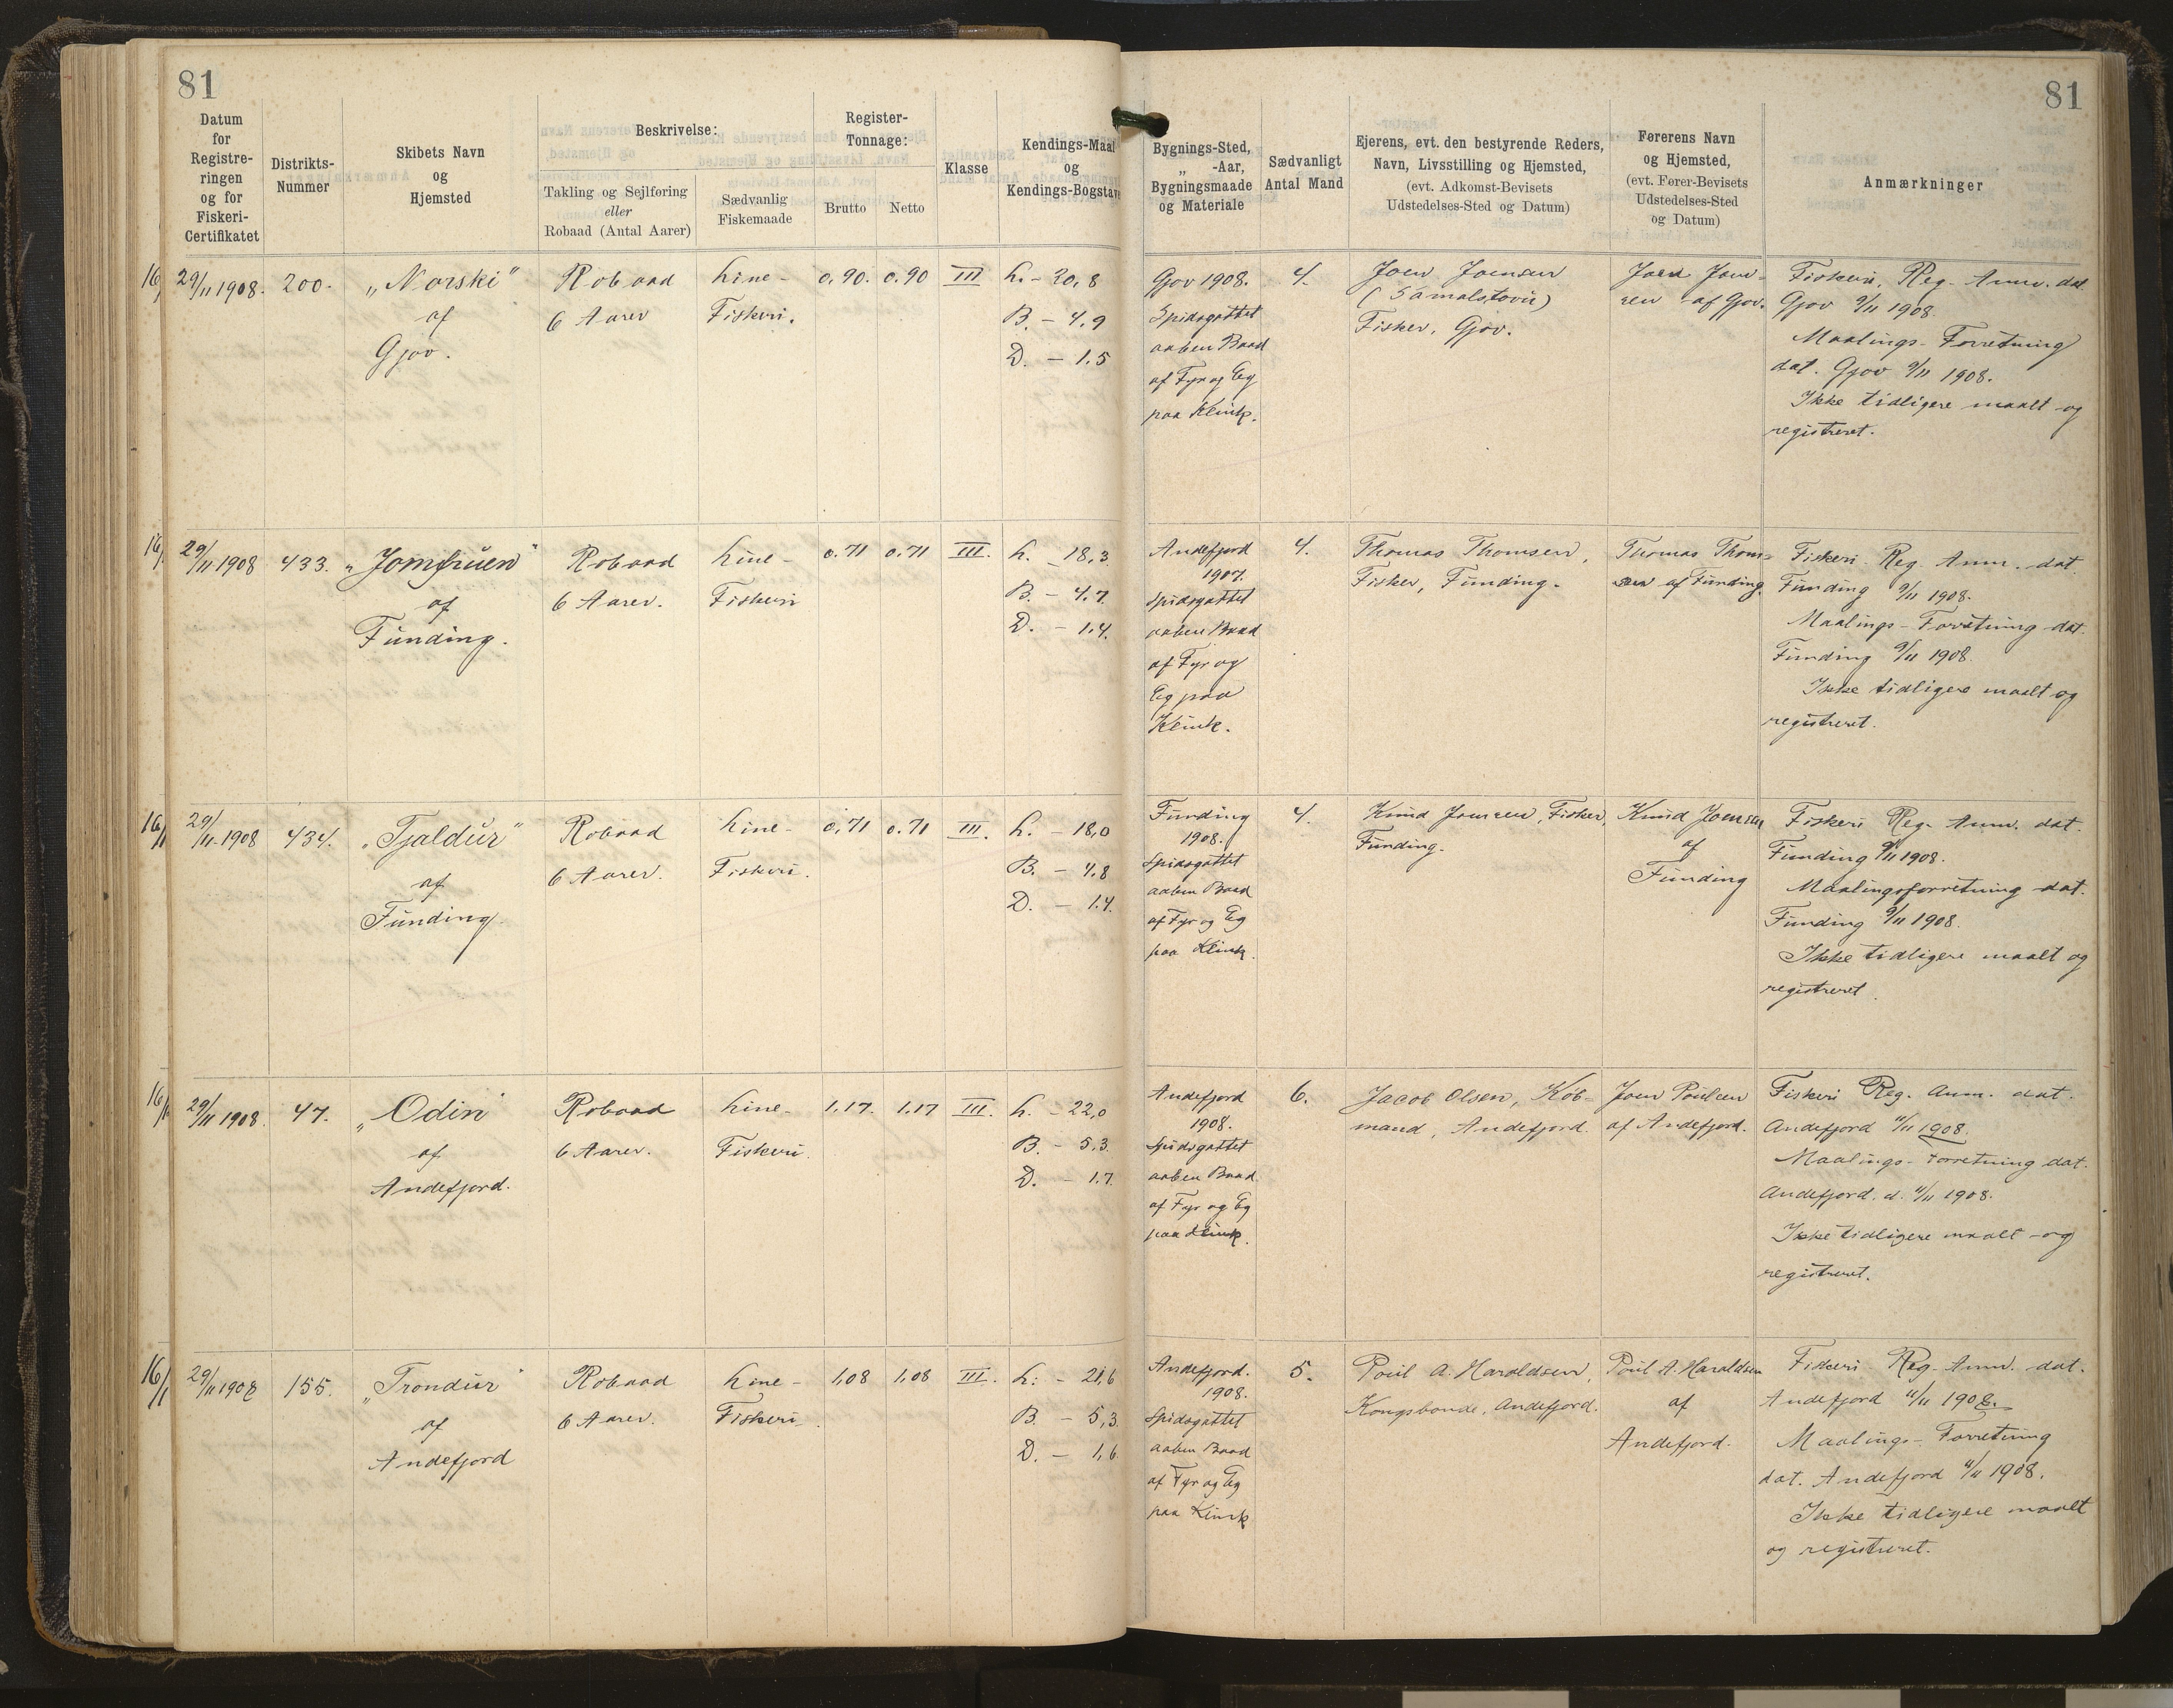 81
81
Datum
for
Registre-
ringen
og for
Fiskeri-
Certifikatet
Distrikts-
Nummer
Skibets Navn
og
Hjemsted
Beskrivelse:
Takling og Sejlføring
eller
Robaad (Antal Aarer)
Sædvanlig
Fiskemaade
Register-
Tonnage:
Brutto
Netto
Klasse
Kendings-Maal
og
Kendings-Bogstave
Bygnings-Sted,
„ -Aar,
Bygningsmaade
og Materiale
Sædvanligt
Antal Mand
Ejerens, evt. den bestyrende Reders,
Navn, Livsstilling og Hjemsted,
(evt. Adkomst-Bevisets
Udstedelses-Sted og Datum)
Førerens Navn
og Hjemsted,
(evt. Fører-Bevisets
Udstedelses-Sted
og Datum)
Anmærkninger
29/11 1908.
200.
„Norski"
af
Gjov.
Robaad
6 Aarer
Line-
Fiskeri.
0,90.
0,90
III
L. - 20,8
B. - 4,9
D. - 1,5
Gjov 1908.
Spidsgattet
aaben Baad
af Fyr og Eg
paa Klink.
4.
Joen Joensen
(Sámalstovu)
Fisker, Gjov.
Joen Joen-
sen af Gjov.
Fiskeri, Reg. Anm. dat.
Gjov 9/11 1908.
Maalings-Forretning
dat. Gjov 9/11 1908.
Ikke tidligere maalt og
registreret.
29/11 1908
433.
„Jomfruen"
af
Funding.
Robaad
6 Aarer.
Line-
Fiskeri
0.71
0.71
III.
L. - 18,3
B. - 4,7
D. - 1,4.
Andefjord
1907.
Spidsgattet
aaben Baad
af Fyr og
Eg paa
Klink.
4.
Thomas Thomsen,
Fisker, Funding.
Thomas Thom-
sen af Funding.
Fiskeri Reg. Anm. dat.
Funding 9/11 1908.
Maalings-Forretning dat.
Funding 9/11 1908.
Ikke tidligere maalt og
registreret.
29/11 1908
434.
„Tjaldur"
af
Funding.
Robaad
6 Aarer.
Line-
Fiskeri.
0,71
0.71
III.
L. - 18,0
B. - 4,8
D. - 1,4.
Funding
1908.
Spidsgattet
aaben Baad
af Fyr og Eg
paa Klink.
4.
Knud Joensen, Fisker,
Funding.
Knud Joensen
af
Funding
Fiskeri Reg. Anm. dat.
Funding 9/11 1908.
Maalingsforretning dat.
Funding 9/11 1908.
Ikke tidligere maalt og
registreret.
29/11 1908.
47.
„Odin"
af
Andefjord.
Robaad
6 Aarer.
Line-
Fiskeri.
1,17.
1,17
III.
L. - 22,0
B. - 5,3.
D. - 1,7.
Andefjord
1908.
Spidsgattet
aaben Baad
af Fyr og Eg
paa Klink.
6.
Jacob Olsen, Køb-
mand, Andefjord.
Joen Poulsen
af Andefjord.
Fiskeri Reg. Anm. dat.
Andefjord 11/11 1908.
Maalings-Forretning dat.
Andefjord. d. 11/11 1908.
Ikke tidligere maalt og
registreret.
29/11 1908
155.
„Trondur"
af
Andefjord
Robaad
6 Aarer.
Line-
Fiskeri.
1,08
1,08
III.
L: - 21,6
B. - 5,3
D. - 1,6
Andefjord.
1908.
Spidsgattet
aaben Baad
af Fyr og Eg
paa Klink
5.
Poul A. Haraldsen,
Kongsbonde, Andefjord.
Poul A. Haraldsen
af
Andefjord.
Fiskeri Reg. Anm. dat.
Andefjord 11/11 1908.
Maalings-Forretning
dat. Andefjord 11/11 1908.
Ikke tidligere maalt
og registreret.